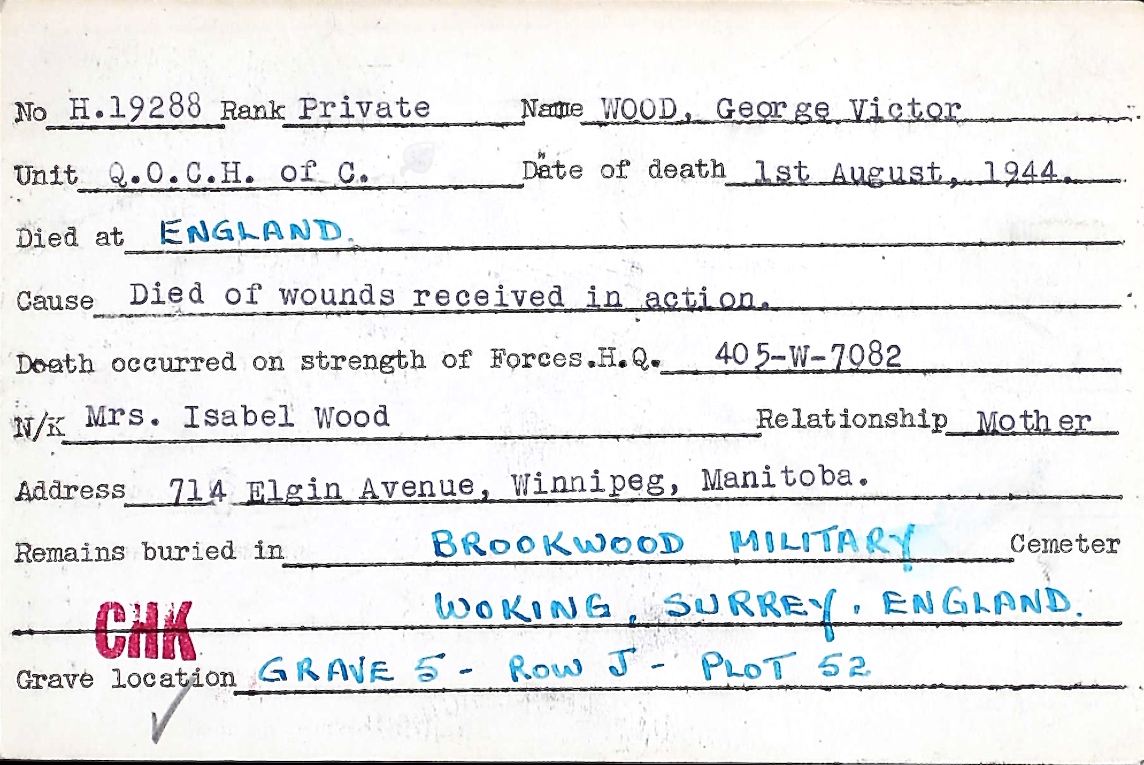 No H.19288 Rank Private Name WOOD, George Victor
Unit Q.O.C.H. of C. Date of death 1st August, 1944.
Died at ENGLAND.
Cause Died of wounds received in action.
Death occurred on strength of Forces.H.Q. 405-W-7082
N/K Mrs. Isabel Wood Relationship Mother
Address 714 Elgin Avenue, Winnipeg, Manitoba.
Remains buried in BROOKWOOD MILITARY Cemeter
CHK WOKING, SURREY. ENGLAND.
Grave location GRAVE 5 - ROW J - PLOT 52